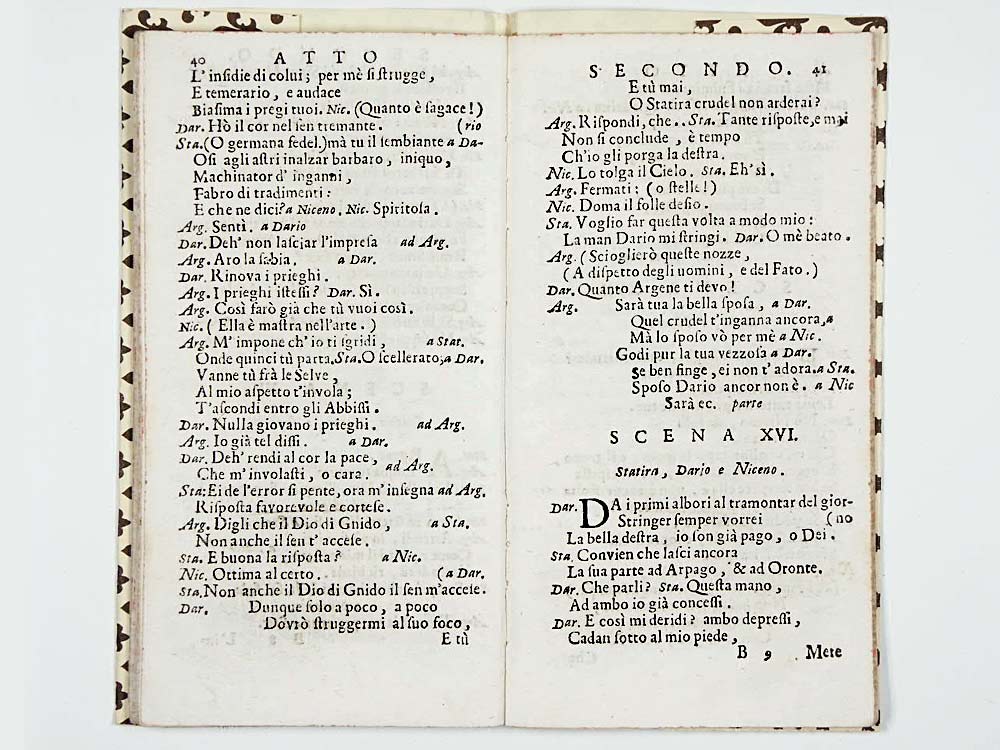 40 ATTO
L' inſidie di colui; per mè ſi ſtrugge,
E temerario, e audace
Biaſima i pregi tuoi. Nic. (Quanto è ſagace!)
Dar. Hò il cor nel ſen tremante. (rio
Sta. (O germana fedel.) mà tu il ſembiante a Da-
Oſi agli aſtri inalzar barbaro, iniquo,
Machinator d' inganni,
Fabro di tradimenti:
E che ne dici? a Niceno. Nic. Spiritoſa.
Arg. Sentì. a Dario
Dar. Deh' non laſciar l'impreſa ad Arg.
Arg. Aro la ſabia. a Dar.
Dar. Rinova i prieghi.
Arg. I prieghi iſteſſi? Dar. Sì.
Arg. Così farò già che tù vuoi così.
Nic. ( Ella è maſtra nell'arte. )
Arg. M' impone ch' io ti ſgridi, a Stat.
Onde quinci tù parta. Sta. O ſcellerato; a Dar.
Vanne tù frà le Selve,
Al mio aſpetto t'invola;
T'aſcondi entro gli Abbiſſi.
Dar. Nulla giovano i prieghi. ad Arg.
Arg. Io già tel diſſi. a Dar.
Dar. Deh' rendi al cor la pace,
Che m' involaſti, o cara. ad Arg.
Sta: Ei de l'error ſi pente, ora m' inſegna ad Arg.
Riſpoſta favorevole e corteſe.
Arg. Digli che il Dio di Gnido, a Sta.
Non anche il ſen t' acceſe.
Sta. E buona la riſpoſta? a Nic.
Nic. Ottima al certo. (a Dar.
Sta. Non anche il Dio di Gnido il ſen m'acceſe.
Dar. Dunque ſolo a poco, a poco
Dovrò ſtruggermi al ſuo foco,
E tù
SECONDO. 41
E tù mai,
O Statira crudel non arderai?
Arg. Riſpondi, che.. Sta. Tante riſpoſte, e mai
Non ſi conclude, è tempo
Ch'io gli porga la deſtra.
Nic. Lo tolga il Cielo. Sta. Eh' sì.
Arg. Fermati: ( o ſtelle! )
Nic. Doma il folle deſio.
Sta. Voglio far queſta volta a modo mio:
La man Dario mi ſtringi. Dar. O mè beato.
Arg. ( Scioglierò queſte nozze,
( A diſpetto degli uomini, e del Fato. )
Dar. Quanto Argene ti devo!
Arg. Sarà tua la bella ſpoſa, a Dar.
Quel crudel t'inganna ancora, a
Mà lo ſpoſo vò per mè a Nic.
Godi pur la tua vezzoſa a Dar.
Se ben finge, ei non t' adora. a Sta.
Spoſo Dario ancor non è. a Nic
Sarà ec. parte
SCENA XVI.
Statira, Dario e Niceno.
Dar. DA i primi albori al tramontar del gior-
Stringer ſemper vorrei (no
La bella deſtra, io ſon già pago, o Dei.
Sta. Convien che laſci ancora
La ſua parte ad Arpago, & ad Oronte.
Dar. Che parli? Sta. Queſta mano,
Ad ambo io già conceſſi.
Dar. E così mi deridi? ambo depreſſi,
Cadan ſotto al mio piede,
B 9 Mete